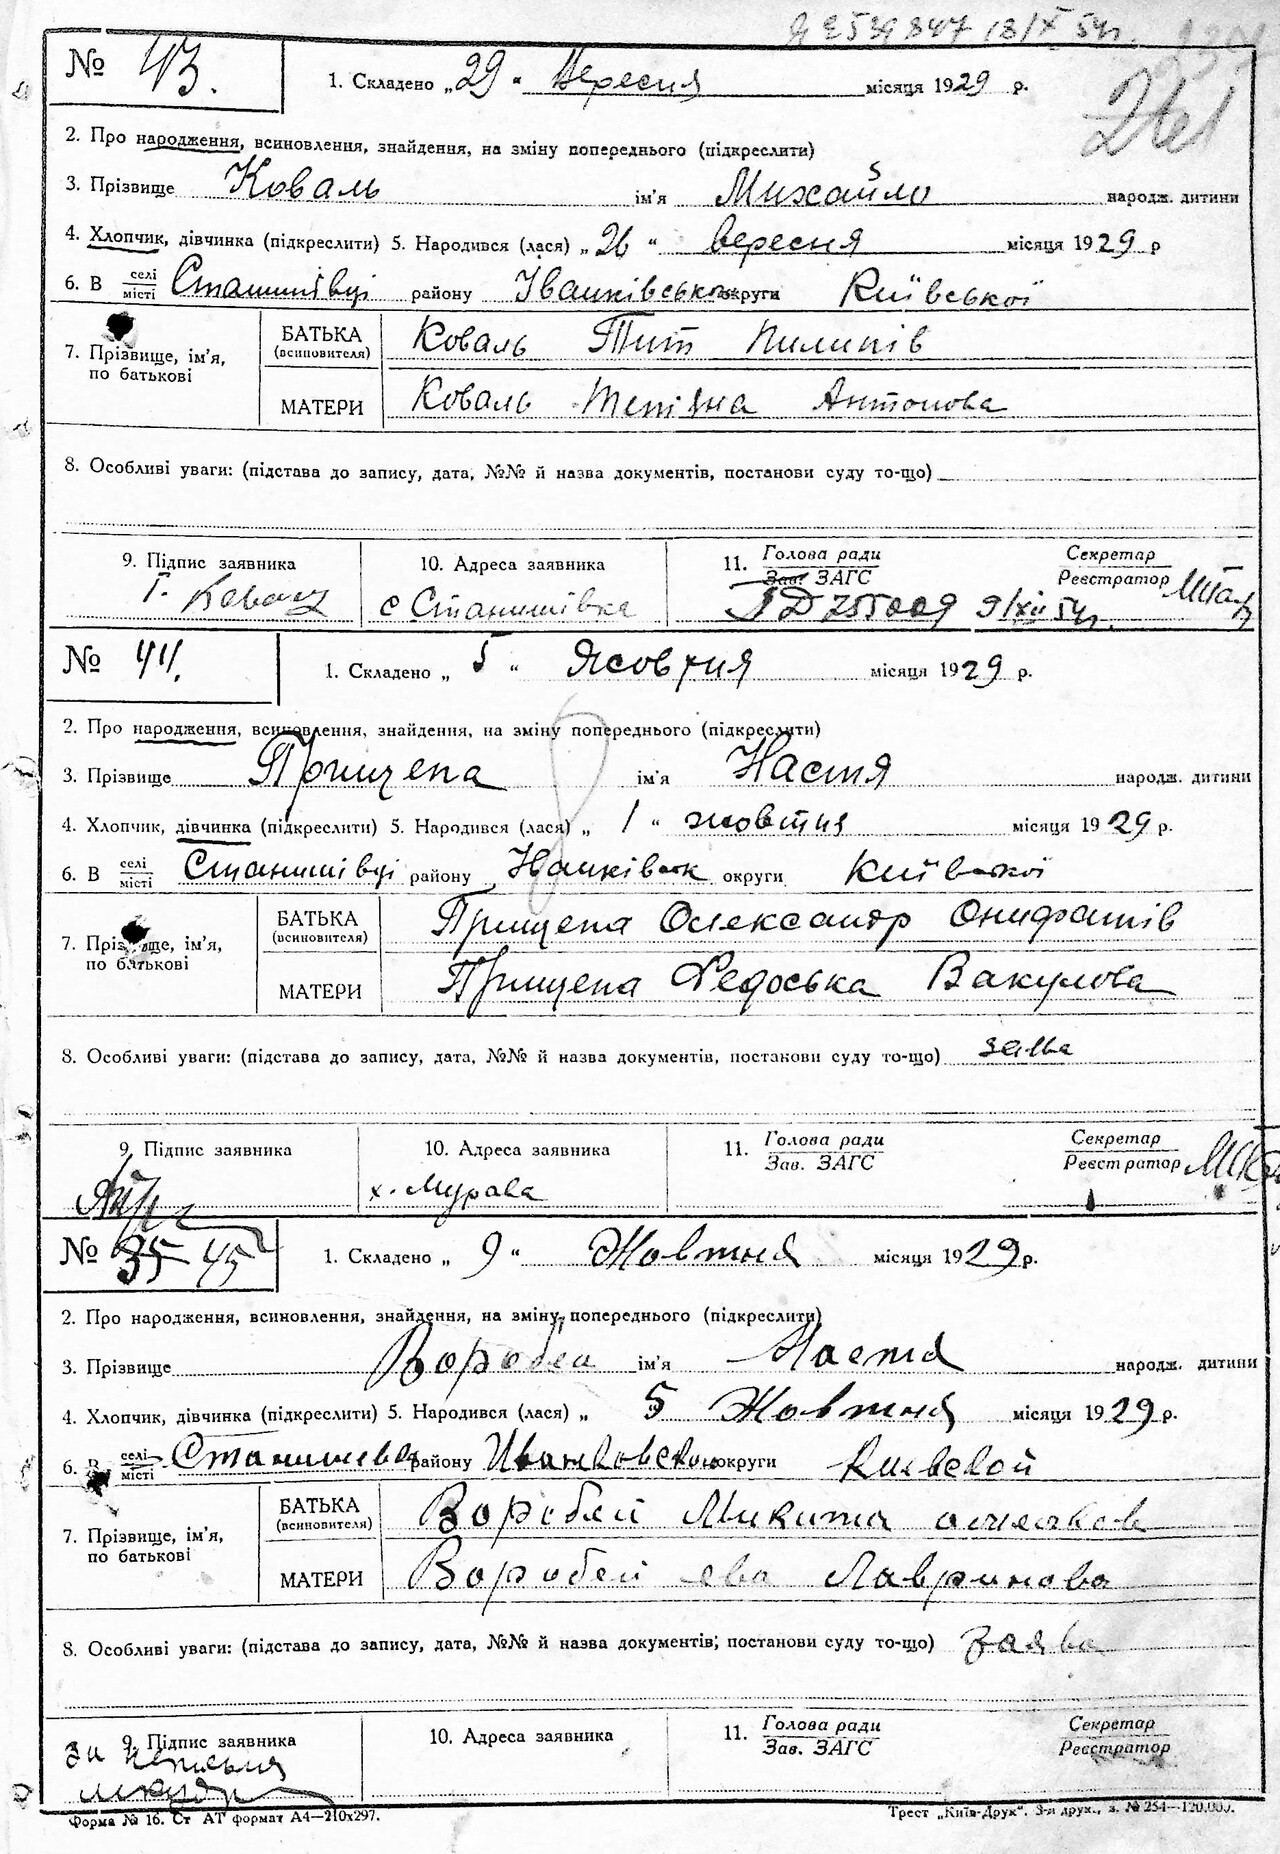 Я Е 539847 13/X 54 г.
№ 43.
1. Складено „29“ Вересня місяця 1929 р.
261
2. Про народження, всиновлення, знайдення, на зміну попереднього (підкреслити)
3. Прізвище Коваль ім'я Михайло народж. дитини
4. Хлопчик, дівчинка (підкреслити) 5. Народився (лася) „26“ вересня місяця 1929 р
6. В селі/місті Станишівці району Іванківськ округи Київської
7. Прізвище, ім'я, по батькові
БАТЬКА (всиновителя) Коваль Тит Пилипів
МАТЕРИ Коваль Тетяна Антонова
8. Особливі уваги: (підстава до запису, дата, №№ й назва документів, постанови суду то-що)
9. Підпис заявника
Т. Коваль
10. Адреса заявника
с Станишівка
11. Голова ради
Зав. ЗАГС
Секретар
Реєстратор
755009 9/XII 54г.
№ 44.
1. Складено „ 5 “ місяця 1929 р.
2. Про народження, всиновлення, знайдення, на зміну попереднього (підкреслити)
3. Прізвище Прищепа ім'я Настя народж. дитини
4. Хлопчик, дівчинка (підкреслити) 5. Народився (лася) „ 1 “ жовтня місяця 1929 р.
6. В селі/місті Станишівці району округи Київської
7. Прізвище, ім'я, по батькові
БАТЬКА (всиновителя) Прищепа Олександр Онифатів
МАТЕРИ Прищепа Федоська Вакулова
8. Особливі уваги: (підстава до запису, дата, №№ й назва документів, постанови суду то-що)
9. Підпис заявника
10. Адреса заявника
х. Мурава
11. Голова ради
Зав. ЗАГС
Секретар
Реєстратор
№ 35 45
1. Складено „ 9 “ Жовтня місяця 1929 р.
2. Про народження, всиновлення, знайдення, на зміну попереднього (підкреслити)
3. Прізвище ім'я Настя народж. дитини
4. Хлопчик, дівчинка (підкреслити) 5. Народився (лася) „ 5 Жовтня місяця 1929 р.
6. В селі/місті району Иванковском округи Киевской
7. Прізвище, ім'я, по батькові
БАТЬКА (всиновителя) Воробей Микита
МАТЕРИ Воробей ева Лавринова
8. Особливі уваги: (підстава до запису, дата, №№ й назва документів, постанови суду то-що) заява
9. Підпис заявника
10. Адреса заявника
11. Голова ради
Зав. ЗАГС
Секретар
Реєстратор
Форма № 16. Ст АТ формат А4—210х297.
Трест „Київ-Друк“. 3-я друк., з. № 254—120.000.